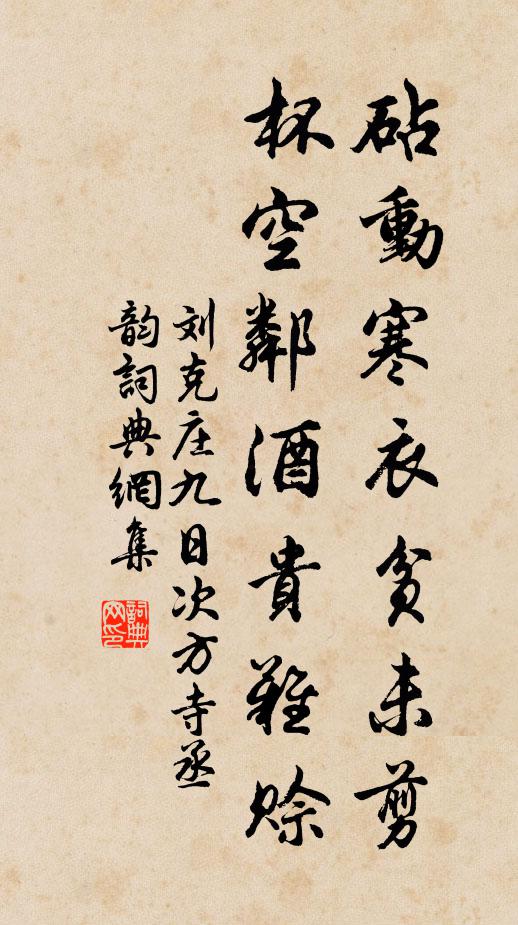 砧動寒衣貧未剪
杯空鄰酒貴難賒
刘克庄九日次方寺丞
韵詞典網集
詞典网印